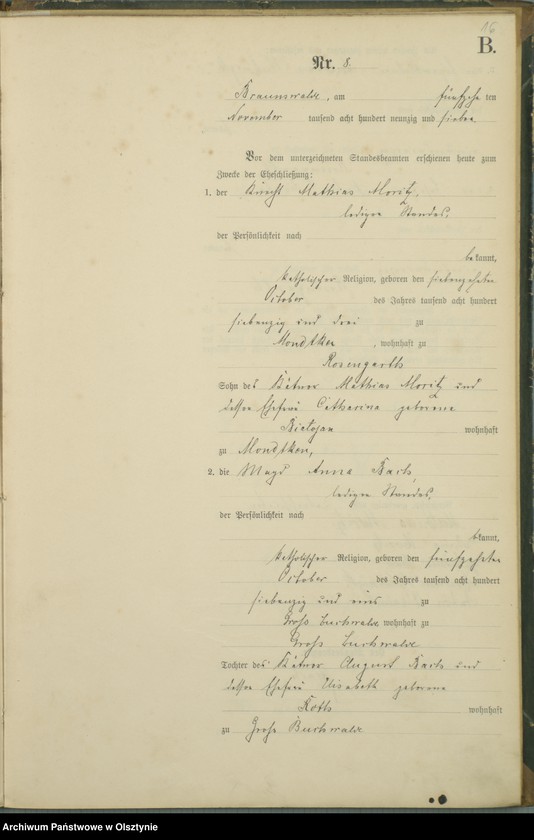 16
B.
Nr. 8.
Braunswalde, am fünfzehn ten
November tausend acht hundert neunzig und sieben.
Vor dem unterzeichneten Standesbeamten erschienen heute zum
Zwecke der Eheschließung:
1. der Knecht Mathias Moritz,
ledigen Standes,
der Persönlichkeit nach
bekannt,
katholischer Religion, geboren den siebenzehnten
October des Jahres tausend acht hundert
siebenzig und drei zu
Mondtken, wohnhaft zu
Rosengarth
Sohn des Kätner Mathias Moritz und
dessen Ehefrau Catharina geborene
wohnhaft
zu Mondtken,
2. die Magd Anna Barb,
ledigen Standes,
der Persönlichkeit nach
bekannt,
katholischer Religion, geboren den fünfzehnten
October des Jahres tausend acht hundert
siebenzig und eins zu
Groß Buchwalde wohnhaft zu
Groß Buchwalde
Tochter des Kätner August Barb und
dessen Ehefrau Elisabeth geborene
Roth wohnhaft
zu Groß Buchwalde
Archiwum Państwowe w Olsztynie